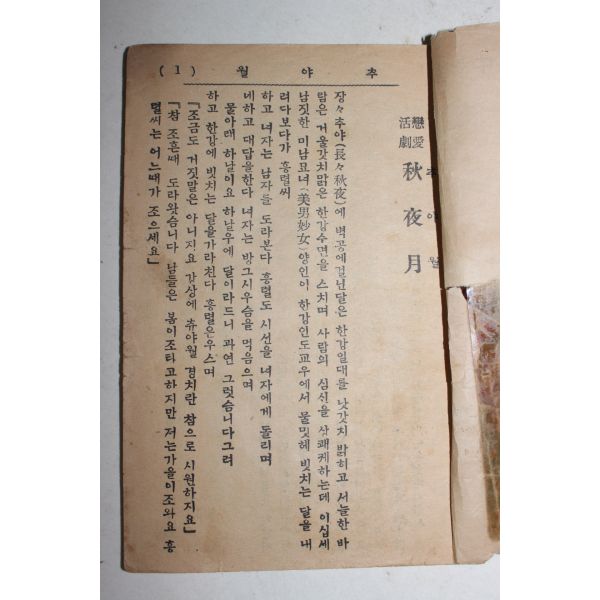 (1) 추야월
戀愛
活劇
秋夜月
추야월
장々추야(長々秋夜)에 벽공에걸닌달은 한강일대를 낫갓치 밝히고 서늘한 바
람은 거울갓치맑은 한강수면을 스치며 사람의 심신을 상쾌케하는데 이십세
남짓한 미남묘녀(美男妙女)양인이 한강인도교우에서 물밋헤 빗치는 달을 내
려다보다가 흥렬씨
하고 녀자는 남자를 도라본다 흥렬도 시선을 녀자에게 돌리며
네하고 대답을한다 녀자는 방그시우슴을 먹음으며
물아래 하날이요 하날우에 달이라드니 과연 그럿슴니다그려
하고 한강에 빗치는 달을가라친다 흥렬은우스며
『조금도 거짓말은 아니지요 강상에 츄야월 경치란 참으로 시원하지요』
『참 조흔때 도라왓슴니다 남들은 봄이조타고하지만 저는가을이조와요 흥
렬씨는 어느때가 조으세요』